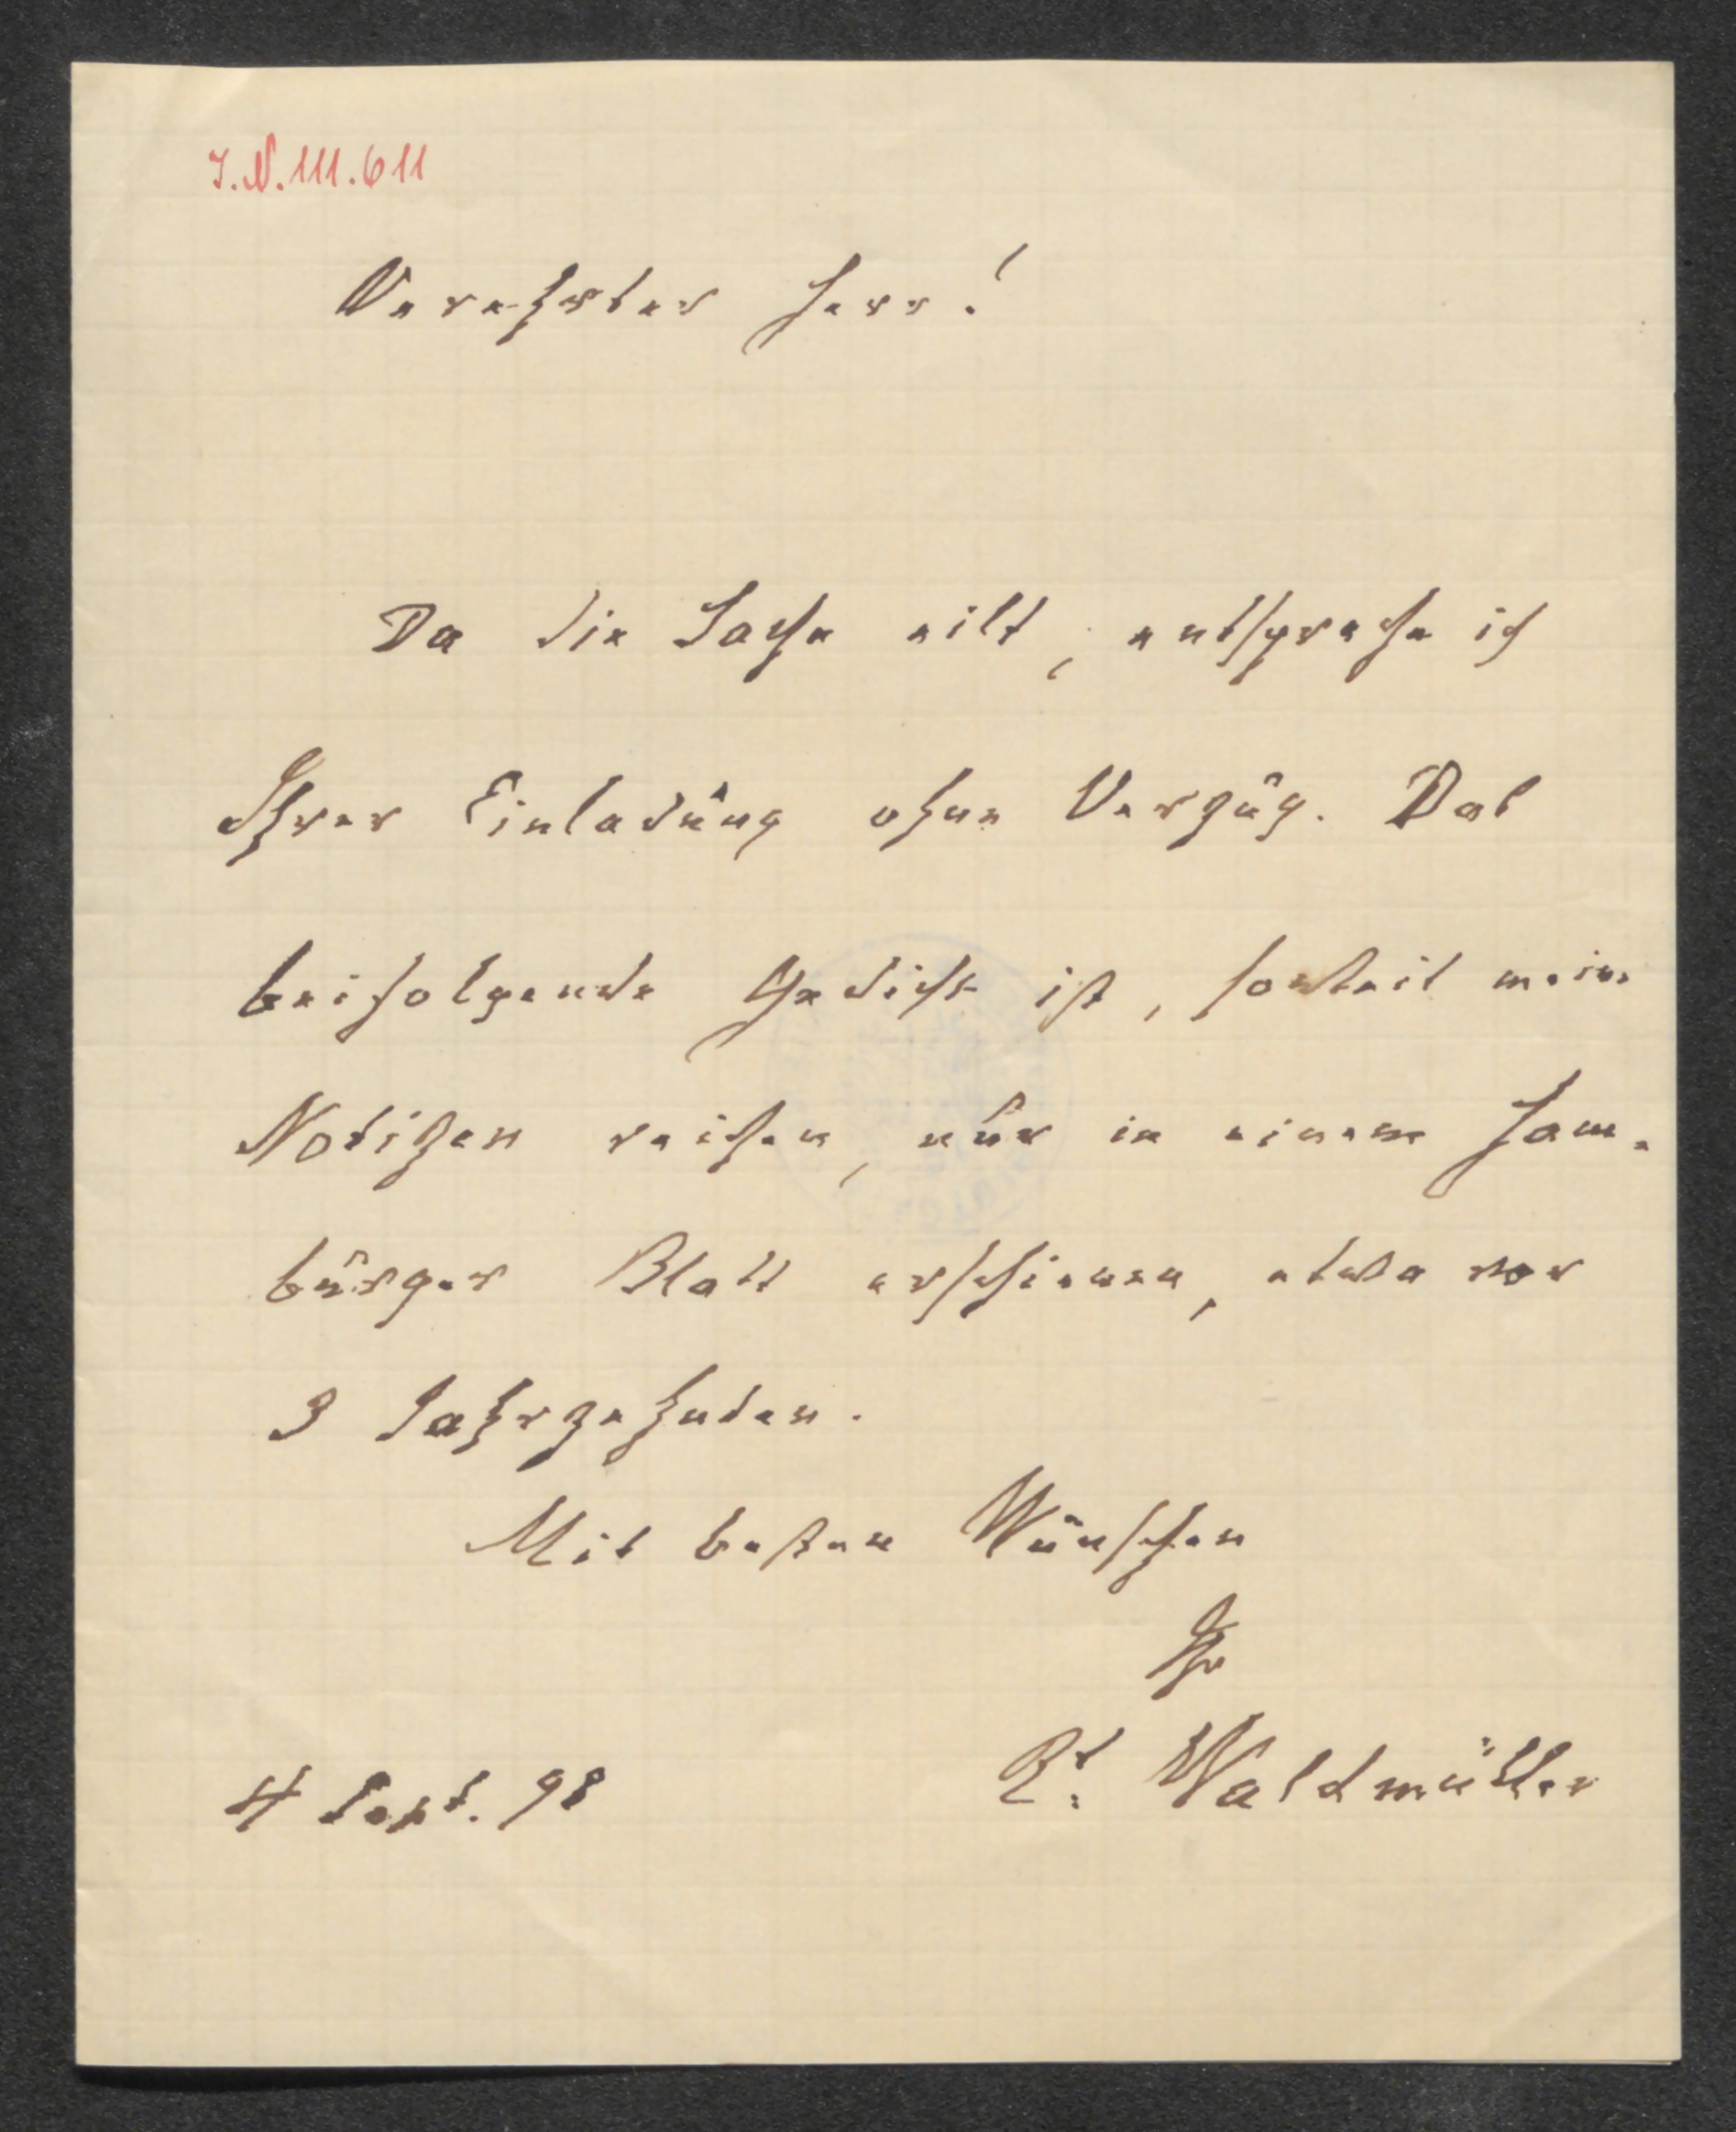 I.N.111.611
Verehrter Herr!
Da die Sache eilt, entspreche ich
Ihrer Einladung ohne Verzug. Das
beifolgende Gedicht ist, soweit meine
Notizen reichen, nur in einem Ham-
burger Blatt erschienen, etwa vor
3 Jahrzehnden.
Mit besten Wünschen
Ihr
Rt Waldmüller
4 Sept. 98